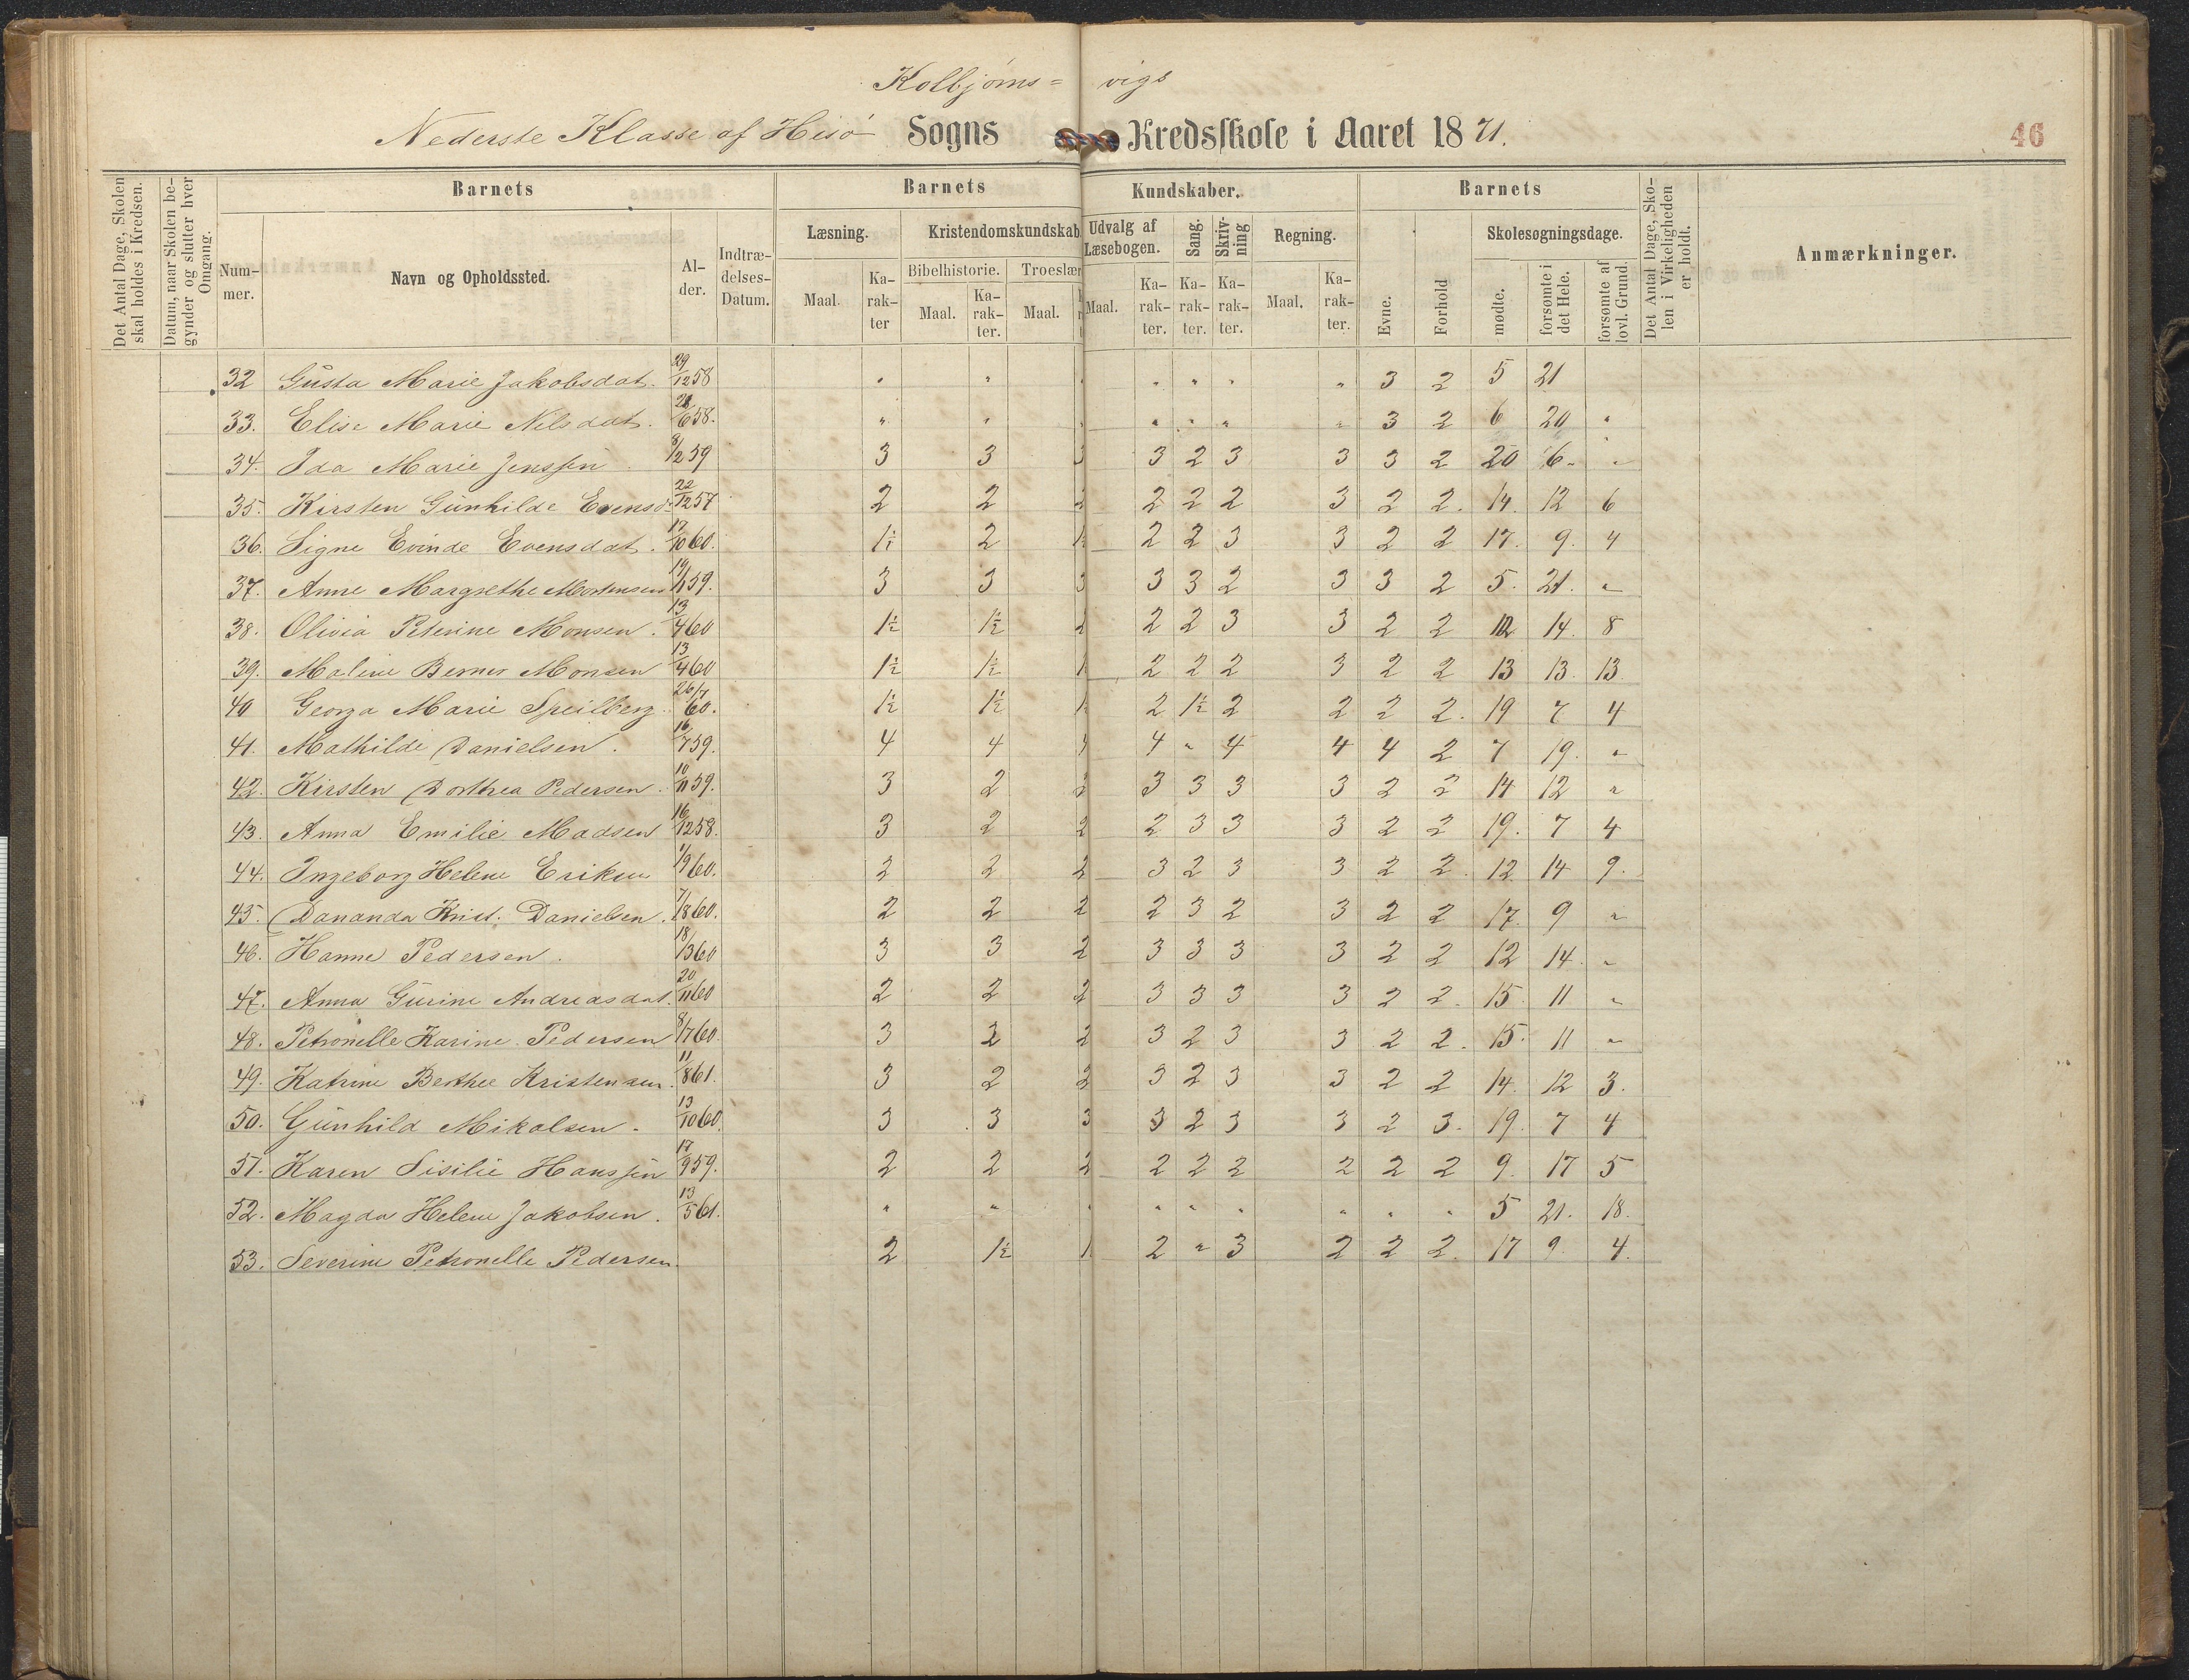 Kolbjørns= vigs
Nederste Klasse af Hisø Sogns Kredsskole i Aaret 1871.
46
Det Antal Dage, Skolen skal holdes i Kredsen.
Datum, naar Skolen begynder og slutter hver Omgang.
Barnets
Barnets Kundskaber.
Barnets
Det Antal Dage, Skolen i Virkeligheden er holdt.
Anmærkninger.
Nummer.
Navn og Opholdssted.
Alder.
Indtrædelses-Datum.
Læsning.
Kristendomskundskab
Udvalg af Læsebogen.
Sang.
Skrivning
Regning.
Evne.
Forhold
Skolesøgningsdage.
Bibelhistorie.
Troeslær
Maal.
Karakter
Maal.
Karakter.
Maal.
Maal.
Karakter.
Karakter.
Karakter.
Maal.
Karakter.
mødte.
forsømte i det Hele.
forsømte af lovl. Grund.
32 Gusta Marie Jakobsdat. 29/12 58 " " " " " " 3 2 5 21
33. Elise Marie Nilsdat. 28/6 58. " " " " " " 3 2 6 20 "
34. Ida Marie Jenssen 8/2 59 3 3 3 3 2 3 3 3 2 20 6 "
35. Kirsten Gunhilde Evensd. 22/12 57 2 2 2 2 2 2 3 2 2. 14. 12 6
36. Signe Evinde Evensdat. 17/10 60. 1½ 2 1½ 2 2 3 3 2 2 17. 9. 4
37. Anne Margrethe Mortensen 19/11 59. 3 3 3 3 3 2 3 3 2 5. 21. "
38. Olivia Peterine Monsen. 13/4 60 1½ 1½ 2 2 2 3 3 2 2 12 14. 8
39. Maline Berner Monsen 13/4 60 1½ 1½ 1 2 2 2 3 2 2 13 13. 13
40 Georga Marie Speilberg 26/7 60. 1½ 1½ 1½ 2 1½ 2 2 2 2. 19 7 4
41. Mathilde Danielsen. 16/7 59. 4 4 4 4 " 4 4 4 2 7 19. "
42. Kirsten Dorthea Pedersen. 10/11 59. 3 2 2 3 3 3 3 2 2 14 12 "
43. Anna Emilie Madsen 16/12 58. 3 2 2 2 3 3 3 2 2 19. 7 4
44. Ingeborg Helene Eriksen 1/9 60. 2 2 2 3 2 3 3 2 2. 12 14 9.
45. Dananda Krist. Danielsen. 7/8 60. 2 2 2 2 3 2 3 2 2 17. 9 "
46. Hanne Pedersen. 18/3 60 3 3 2 3 3 3 3 2 2 12 14. "
47. Anna Gurine Andreasdat. 20/11 60 2 2 2 3 3 3 3 2 2. 15. 11 "
48. Petronelle Karine Pedersen 8/7 60 3 2 2 3 2 3 3 2 2. 15. 11 "
49. Katrine Berthee Kristensen. 11/8 61. 3 2 2 3 2 3 3 2 2 14. 12 3.
50. Gunhild Mikalsen. 13/10 60. 3 3 3 3 2 3 3 2 3. 19. 7 4
51. Karen Sisilie Hanssen 17/9 59. 2 2 2 2 2 2 2 2 2 9. 17 5
52. Magda Helene Jakobsen. 13/5 61. " " " " " " " " " 5 21. 18.
53. Severine Petronelle Pedersen. 2 1½ 1 2 " 3 2 2 2. 17 9. 4.